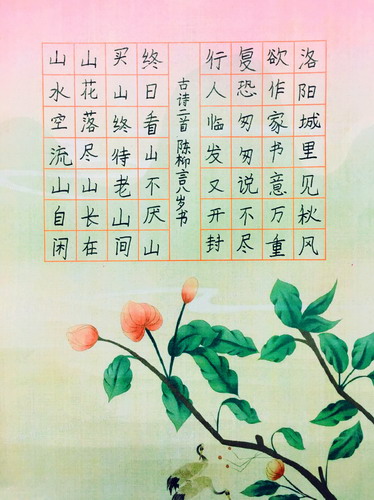 洛阳城里见秋风
欲作家书意万重
复恐匆匆说不尽
行人临发又开封
古诗二首 陈柳言八岁书
终日看山不厌山
买山终待老山间
山花落尽山长在
山水空流山自闲